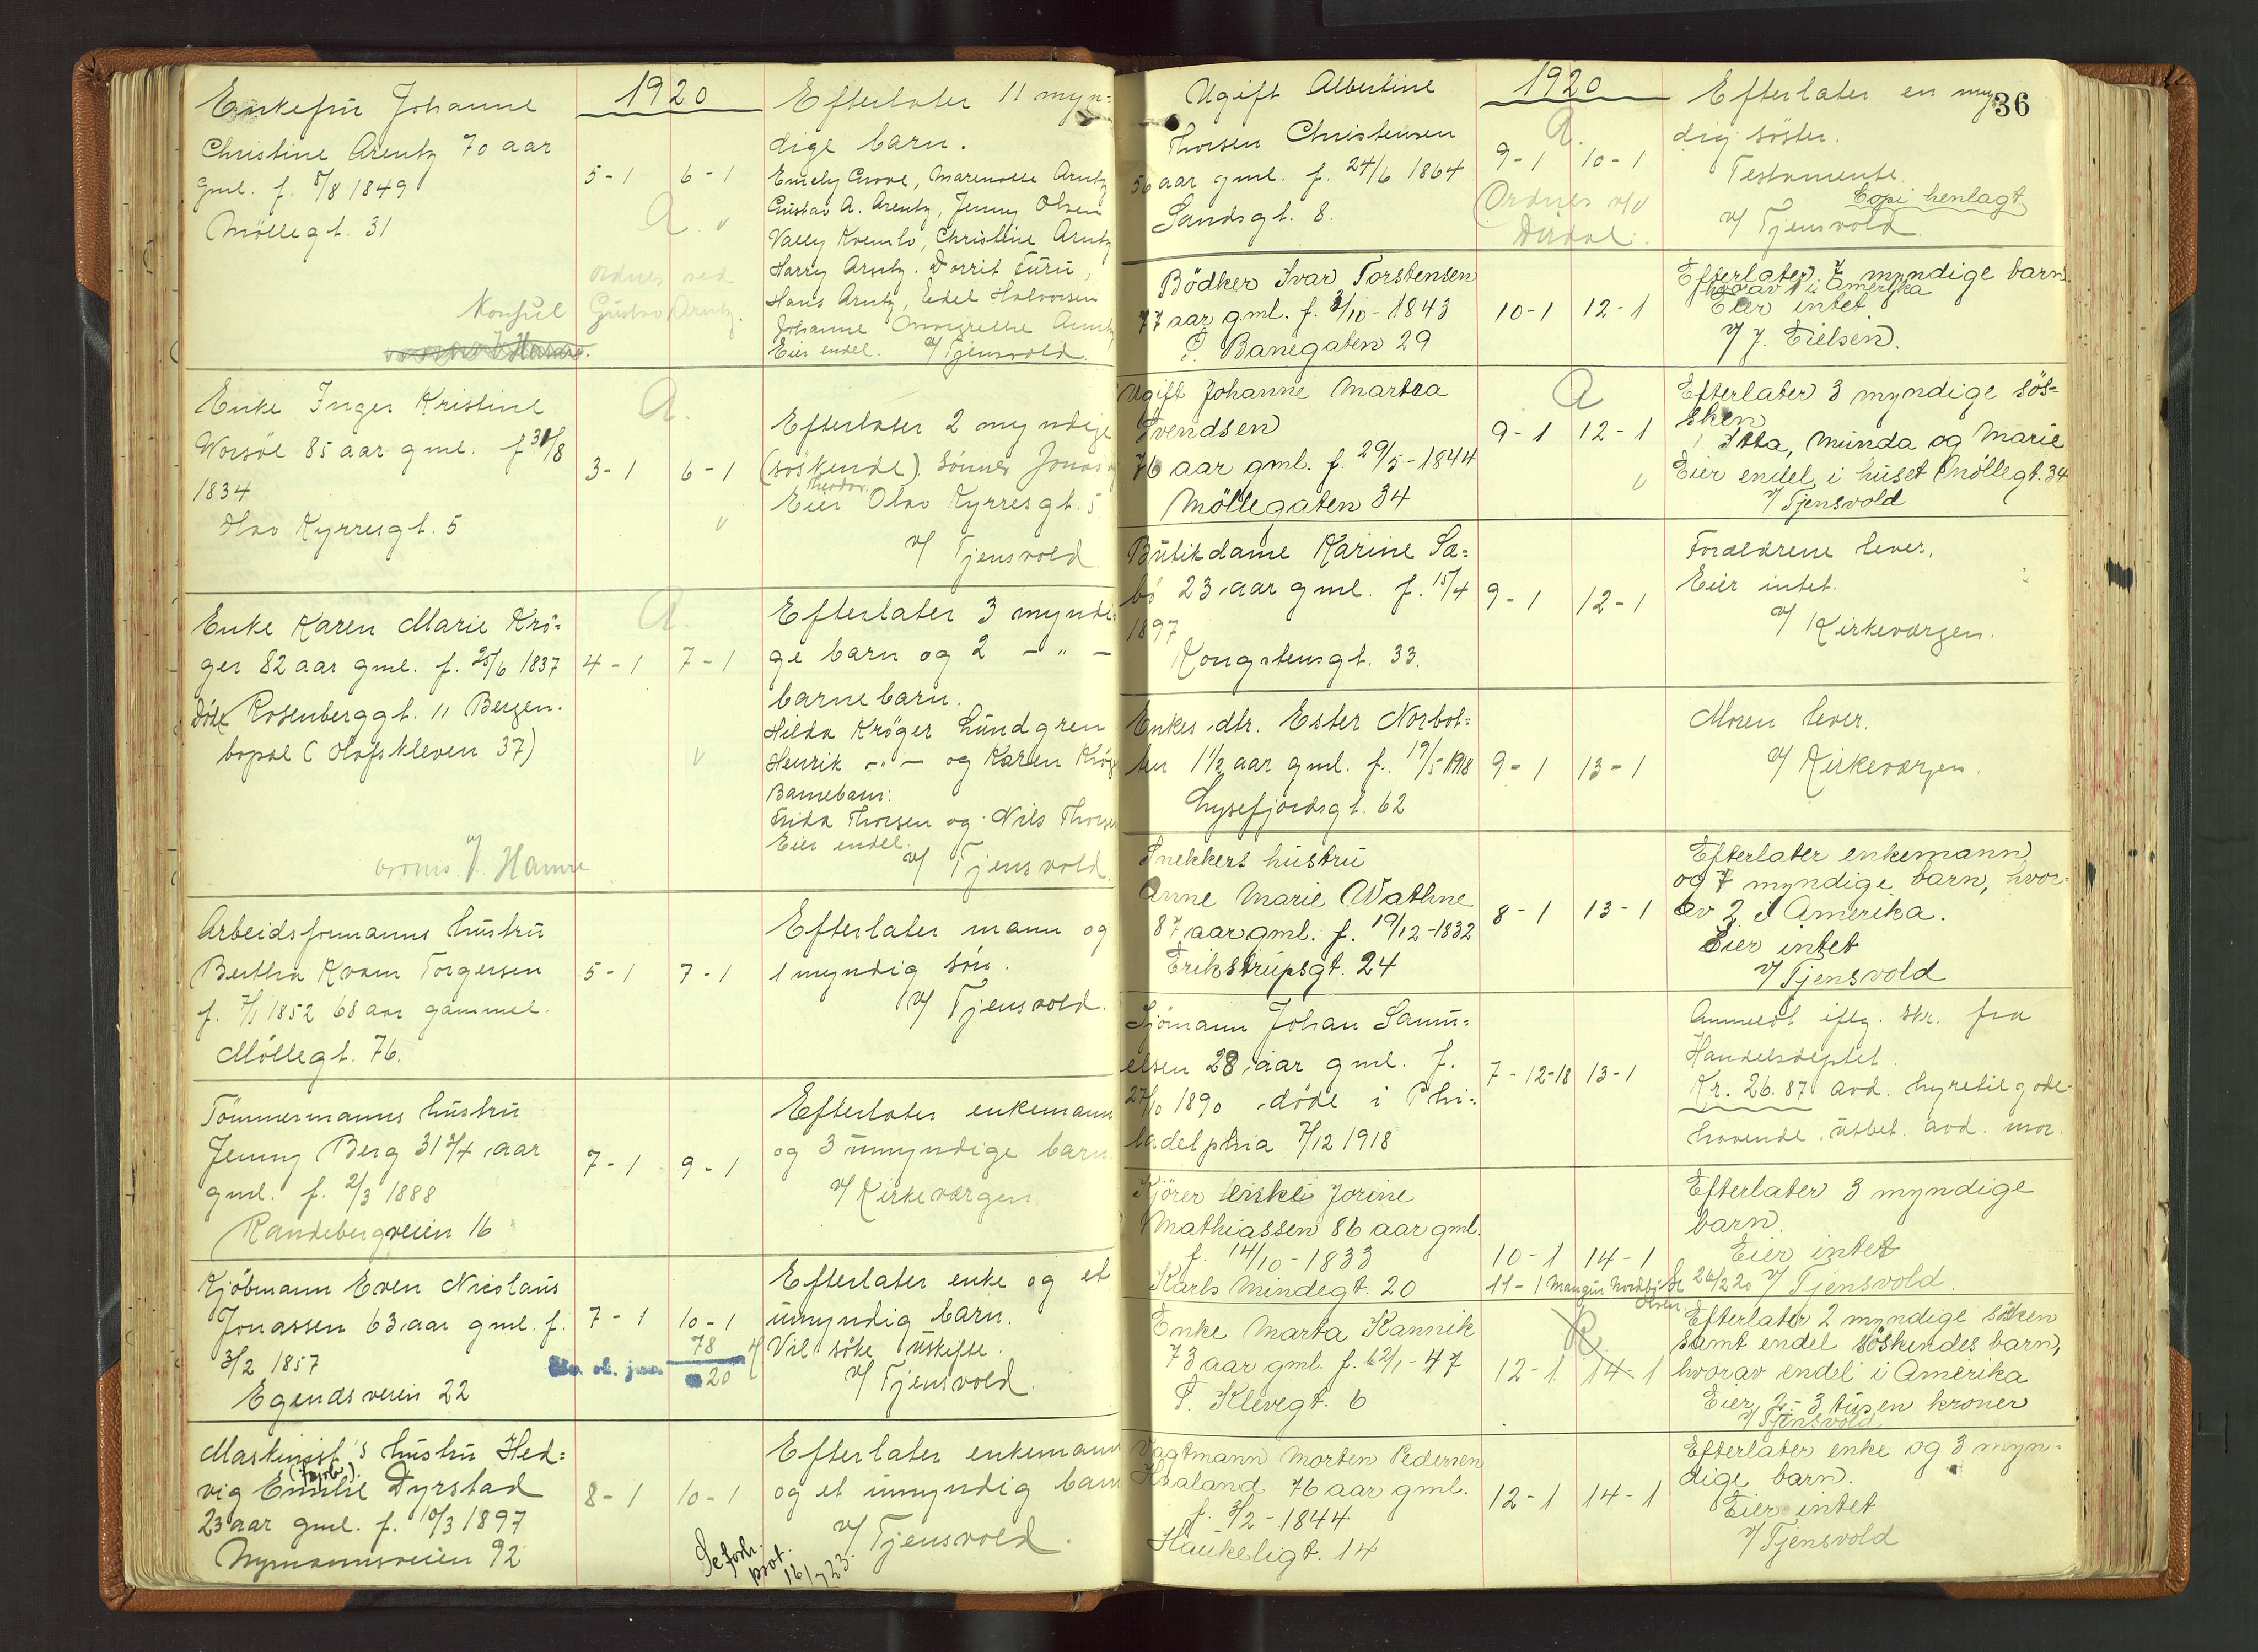 1920
Enkefru Johanne
Christine Arentz 70 aar
gml. f. 8/8 1849
Møllegt. 31
Konsul
5-1 6-1
A.
ordnes ved
Gustav Arntz.
Efterlater 11 myn=
dige barn.
Emely Grove, Marenolle Arntz
Gustav A. Arentz, Jenny Olsen
Vally Kvemlo, Christine Arntz
Harry Arntz. Dorrit Furu,
Hans Arntz, Edel Halvorsen
Johanne Margrethe Arntz
Eier endel. v/ Tjensvold.
Enke Inger Kristine
Worsøe 85 aar gml. f 31/8
1834
Olav Kyrresgt. 5
A.
3-1 6-1
Efterlater 2 myndige
(søskende) sønner Jonas og
Theodor
Eier Olav Kyrresgt. 5
v/ Tjensvold
Enke Karen Marie Krö=
ger 82 aar gml. f. 25/6 1837
døde Rosenberggt. 11 Bergen.
bopæl (Olafskleven 37)
v/ Hamre
A.
4-1 7-1
Efterlater 3 myndi=
ge barn og 2 - " -
barnebarn.
Hilda Kröger Lundgren
Henrik - " - og Karen Kröger
Barnebarn:
Frida Thorsen og Nils Thorsen
Eier endel.
v/ Tjensvold.
Arbeidsformanns hustru
Bertha Kvam Torgersen
f. 7/1 1852 68 aar gammel.
Møllegt. 76.
5-1 7-1
Efterlater mann og
1 myndig søn.
v/ Tjensvold.
Tømmermanns hustru
Jenny Berg 31 3/4 aar
gml. f. 2/3 1888
Randebergveien 16
7-1 9-1
Efterlater enkemann
og 3 umyndige barn.
v/ Kirkevergen
Kjøbmann Even Nicolaus
Jonassen 63 aar gml. f.
3/2 1857
Egendsveien 22
7-1 10-1
78
20
Efterlater enke og et
umyndig barn.
Vil søke uskifte.
v/ Tjensvold.
Maskinist's hustru Hed=
vig Emilie Dyrstad
23 aar gml. f. 10/3 1897
Nymannsveien 92
8-1 10-1
Se forh.
prot.
16/7 23.
Efterlater enkemann
og et umyndig barn
v/ Tjensvold.
36
1920
Ugift Albertine
Thorsen Christensen
56 aar gml. f. 24/6 1864
Sandsgt. 8.
A.
9-1 10-1
Ordnes v/
Dirdal.
Efterlater en myn
dig søster.
Testamente.
Copi henlagt
v/ Tjensvold.
Bødker Ivar Torstensen
77 aar gml. f. 3/10-1843
P. Banegaten 29
10-1 12-1
Efterlater 7 myndige barn
hvorav 1 i Amerika
Eier intet
v/ J. Eielsen.
Ugift Johanne Martea
Svendsen
76 aar gml. f. 29/5-1844
Møllegaten 34
A
9-1 12-1
Efterlater 3 myndige søs=
sken
Itta, Minda og Marie
Eier endel i huset Møllegt. 34
v/ Tjensvold
Butikdame Karine Sa=
bö 23 aar gml. f. 15/4
1897
Kongstensgt. 33.
9-1 12-1
Forældrene lever.
Eier intet.
v/ Kirkevergen.
Enkes dtr. Ester Norbot=
ten 1 1/2 aar gml. f. 19/5-1918
Lysefjordsgt. 62
9-1 13-1
Moren lever.
v/ Kirkevergen.
Snekkers hustru
Anne Marie Wathne
87 aar gml. f. 19/12-1832
Erikstrupsgt. 24
8-1 13-1
Efterlater enkemann
og 7 myndige barn, hvor-
av 2 i Amerika.
Eier intet
v/ Tjensvold
Sjømann Johan Samu=
elsen 28 aar gml. f.
27/10 1890 døde i Phi=
ladelphia 7/12 1918
7-12-18 13-1
Anmeldt iflg. skr. fra
Handelsdeptet.
Kr. 26.87 avd. hyretilgode-
havende utbet. avd. mor.
Kjører enke Jorine
Mathiassen 86 aar gml.
f. 14/10-1833
Karls Mindegt. 20
10-1 14-1
Efterlater 3 myndige
barn.
Eier intet
v/ Tjensvold
Enke Marta Kannik
73 aar gml. f. 12/1-47
P. Klevegt. 6
12-1 14-1
Efterlater 2 myndige søsken
samt endel søskendes barn,
hvorav endel i Amerika
Eier 2-3 tusen kroner
v/ Tjensvold
Vagtmann Morten Pedersen
Haaland 76 aar gml.
f. 3/2-1844
Haukeligt. 14
12-1 14-1
Efterlater enke og 3 myn-
dige barn.
Eier intet
v/ Tjensvold